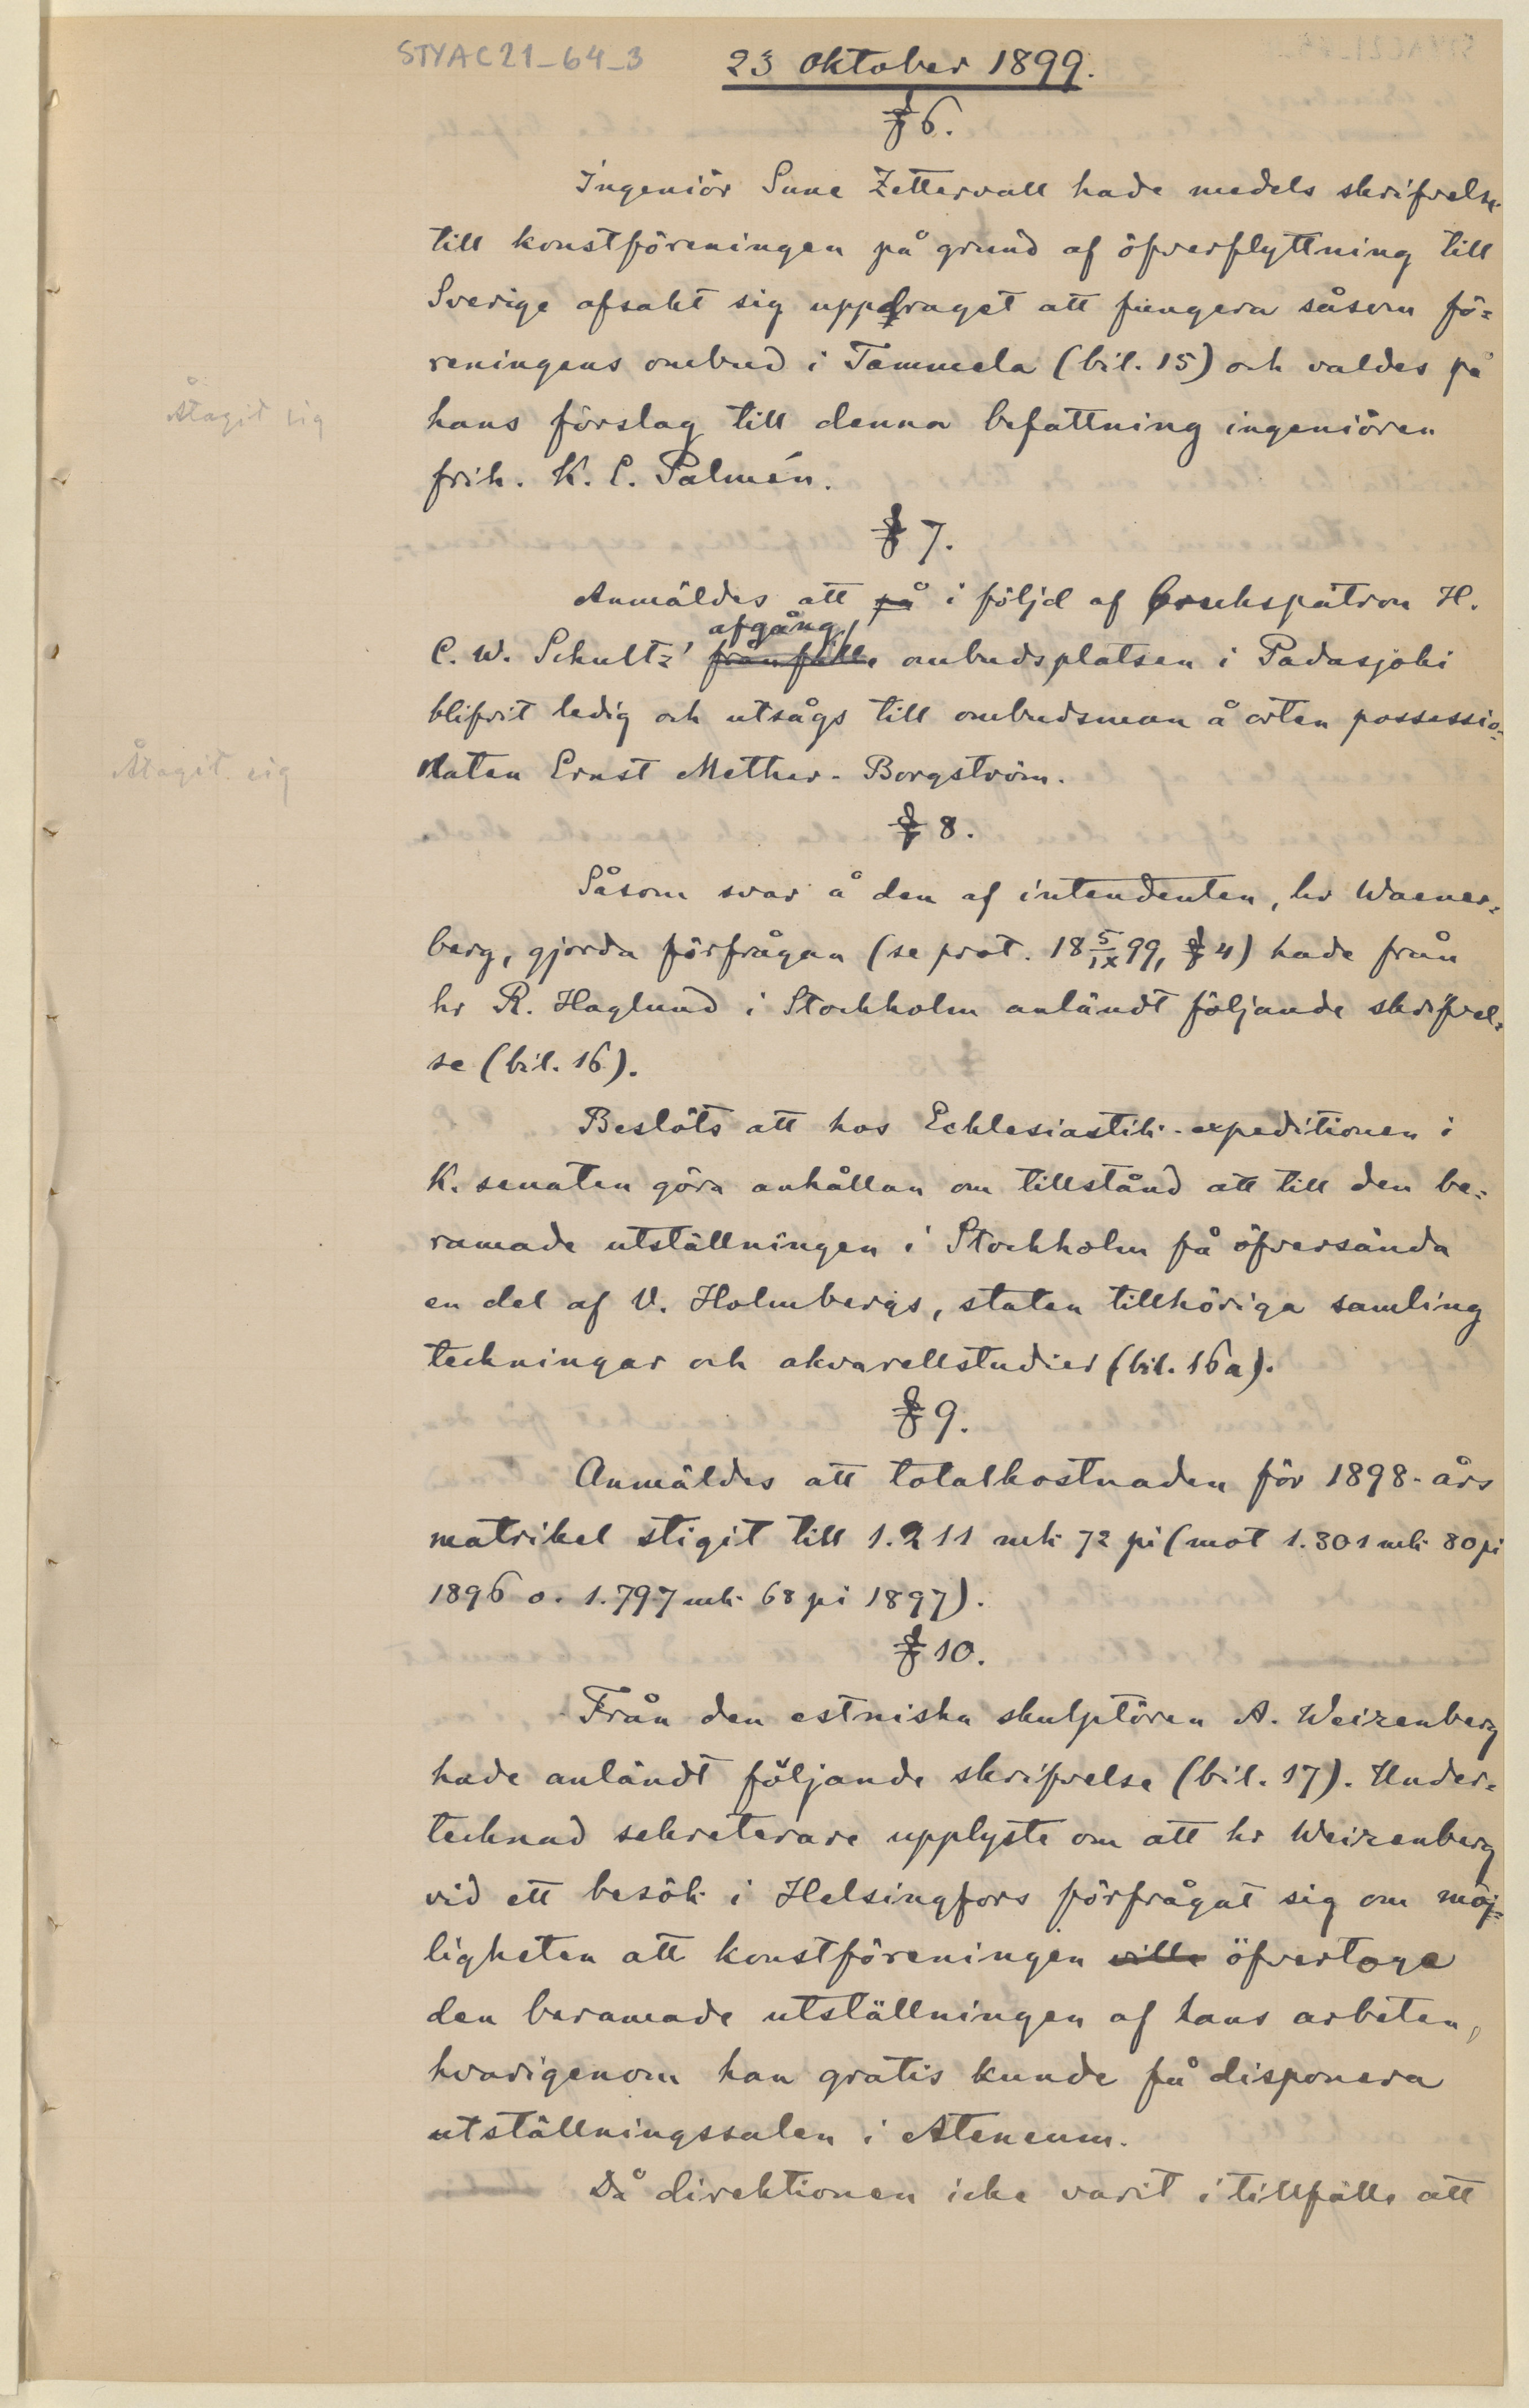 STYAC21_64_3
23 Oktober 1899.
§ 6.
Ingeniör Sune Zettervall hade medels skrifvelse
till konstföreningen på grund af öfverflyttning till
Sverige afsakt sig uppdraget att fungera såsom fö=
reningens ombud i Tammela (bil. 15) och valdes på
Åtagit sig
hans förslag till denna befattning ingeniören
frih. K. E. Palmén.
§ 7.
Anmäldes att på i följd af brukspatron H.
afgång
C. W. Schultz' frånfälle ombudsplatsen i Padasjoki
blifvit ledig och utsågs till ombudsman å orten possessio=
Åtagit sig
naten Ernst Mether-Borgström.
§ 8.
Såsom svar å den af intendenten, hr Waener=
berg, gjorda förfrågan (se prot. 18 5/IX 99, § 4) hade från
hr R. Haglund i Stockholm anländt följande skrifvel=
se (bil. 16).
Beslöts att hos Ecklesiastik-expeditionen i
K. senaten göra anhållan om tillstånd att till den be=
ramade utställningen i Stockholm få öfversända
en del af V. Holmbergs, staten tillhöriga samling
teckningar och akvarellstudier (bil. 16a).
§ 9.
Anmäldes att totalkostnaden för 1898-års
matrikel stigit till 1.211 mk 72 pi (mot 1.301 mk 80 pi
1896 o. 1.797 mk 68 pi 1897).
§ 10.
Från den estniska skulptören A. Weizenberg
hade anländt följande skrifvelse (bil. 17). Under=
tecknad sekreterare upplyste om att hr Weizenberg
vid ett besök i Helsingfors förfrågat sig om möj=
ligheten att konstföreningen ville öfvertoge
den beramade utställningen af hans arbeten,
hvarigenom han gratis kunde få disponera
utställningssalen i Ateneum.
Då direktionen icke varit i tillfälle att